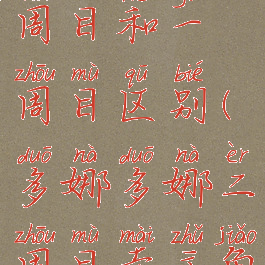 周目和一
zhōu mù qū bié
周目区别(
duō nà duō nà èr
多娜多娜二
zhōu mù mài zhǔ jiǎo
周目卖主角